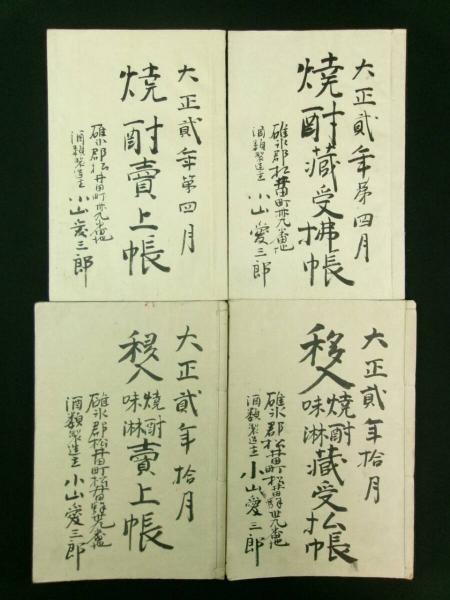 大正貳年第四月
燒酎藏受拂帳
碓氷郡松井田町
酒類製造主 小山愛三郎
大正貳年第四月
燒酎賣上帳
碓氷郡松井田町
酒類製造主 小山愛三郎
大正貳年拾月
移入燒酎味淋藏受払帳
碓氷郡松井田町
酒類製造主 小山愛三郎
大正貳年拾月
移入燒酎味淋賣上帳
碓氷郡松井田町
酒類製造主 小山愛三郎